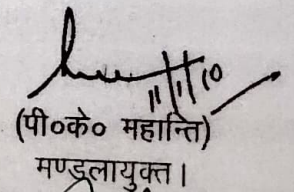 11/1/10
(पी०के० महान्ति)
मण्डलायुक्त।